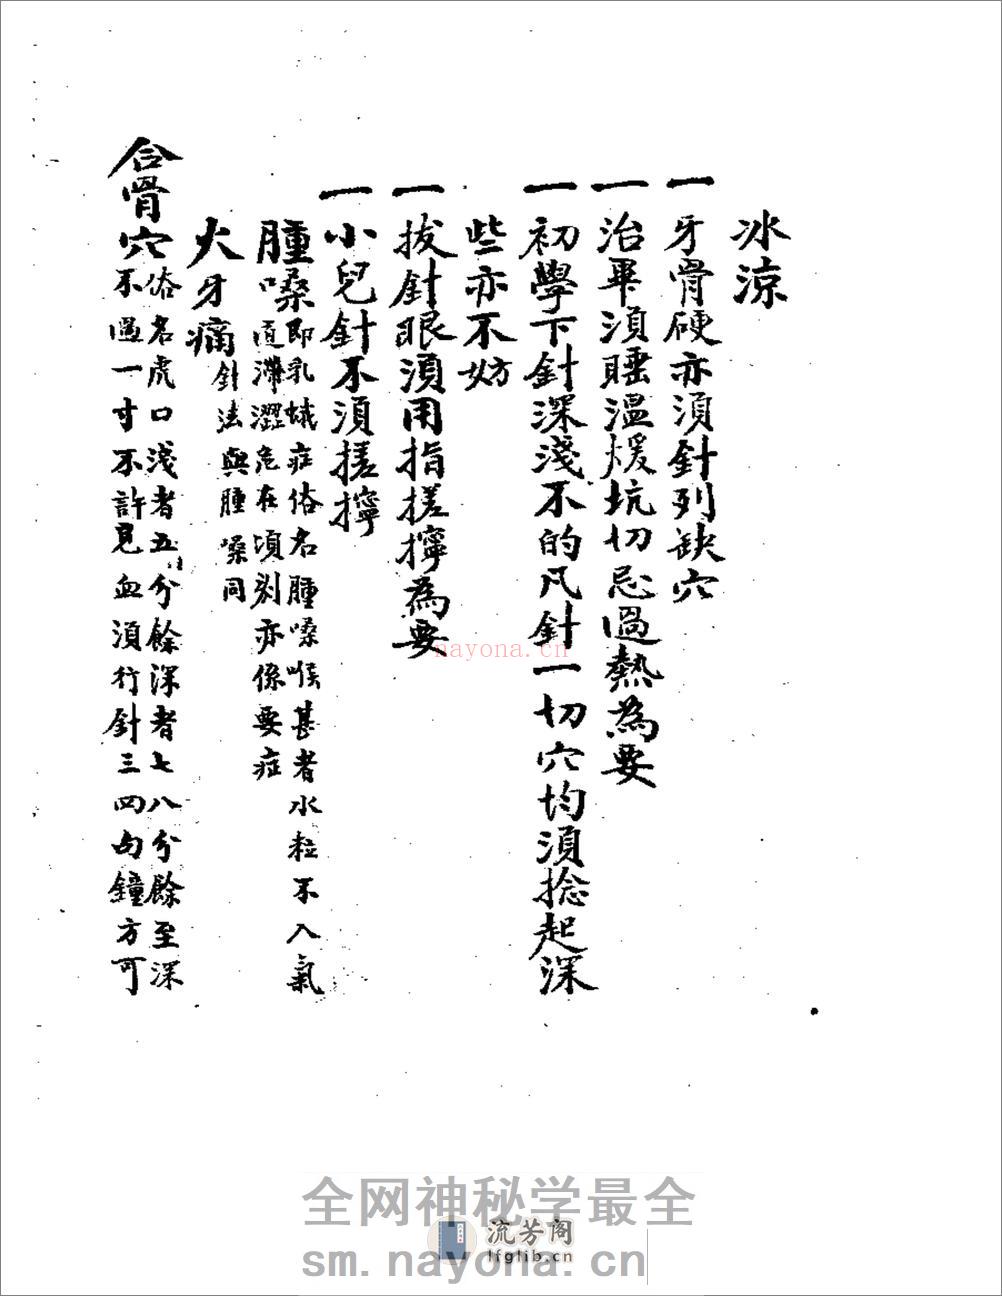 冰涼
一牙骨硬亦須針列缺穴
一治畢須睡溫煖坑切忌過熱為要
一初學下針深淺不的凡針一切穴均須捻起深
些亦不妨
一拔針眼須用指搓擰為要
一小兒針不須搓擰
腫嗓即乳蛾症俗名腫嗓喉甚者水粒不入氣
口道滯澀危在頃刻亦係要症
大牙痛針法與腫嗓同
合骨穴俗名虎口淺者五分餘深者七八分餘至深
不過一寸不許見血須行針三四句鐘方可
nayona.cn
全网神秘学最全
流芳阁
lfglib.cn
sm.nayona.cn